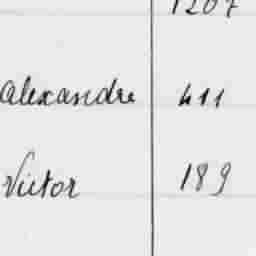 1207
Alexandre 411
Victor 189